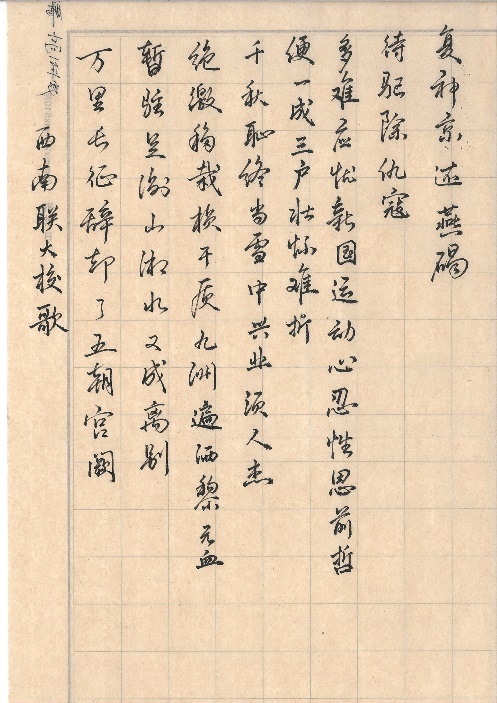 西南联大校歌
万里长征辞却了五朝宫阙
暫驻足衡山湘水又成离别
绝徼移栽桢干质九洲遍洒黎元血
千秋耻终当雪中兴业须人杰
便一成三户壮怀难折
多难应忧新国运动心忍性思前哲
待驱除仇寇
复神京还燕碣